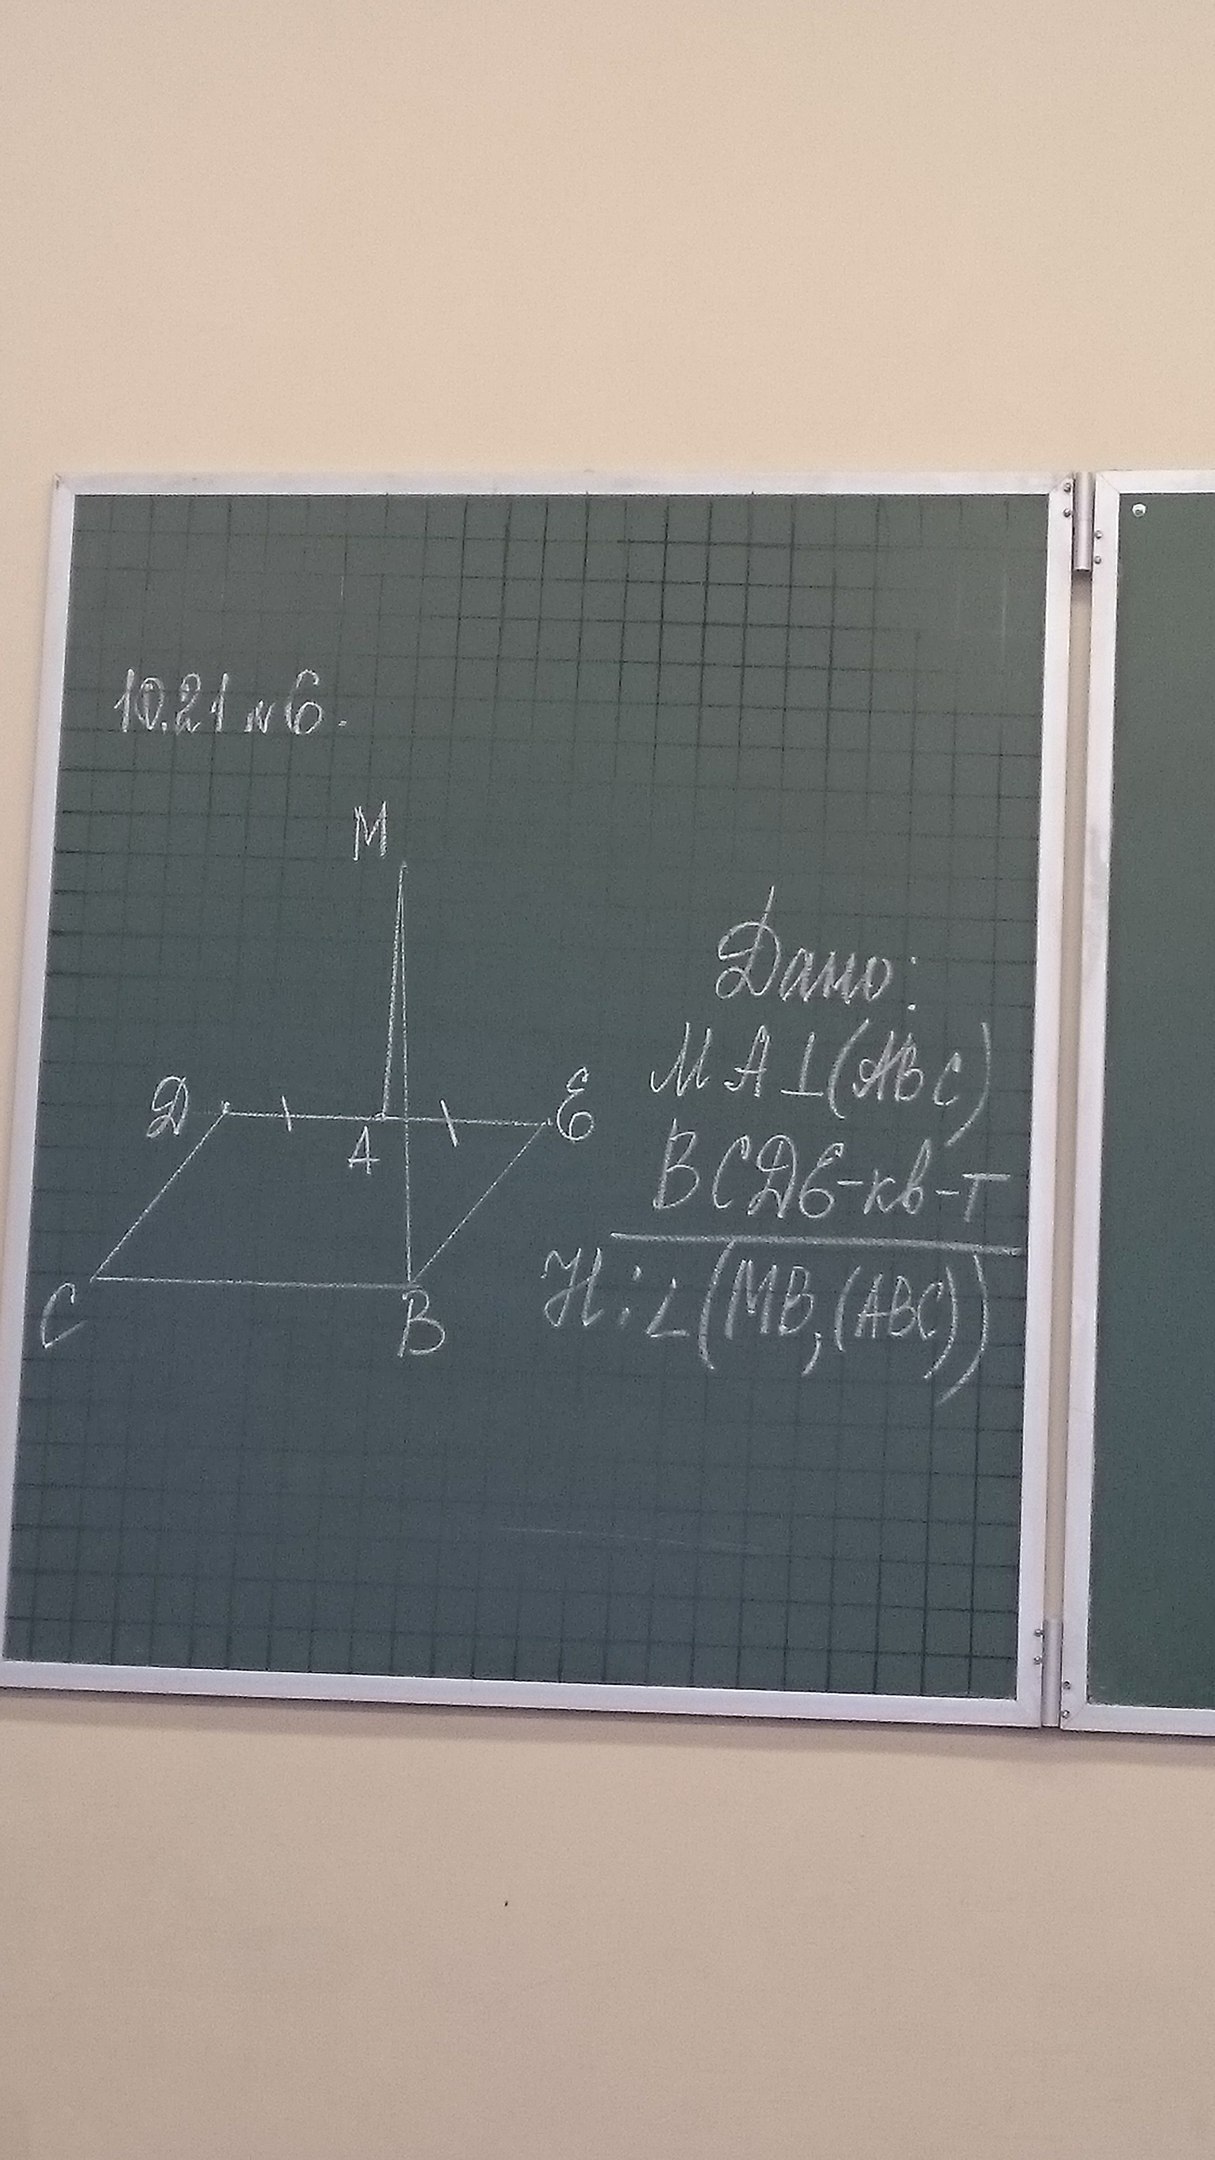 10.21 №6.
M
Дано:
MA⊥(ABC)
D
E
A
BCDE-кв-т
H:∠(MB,(ABC))
C
B